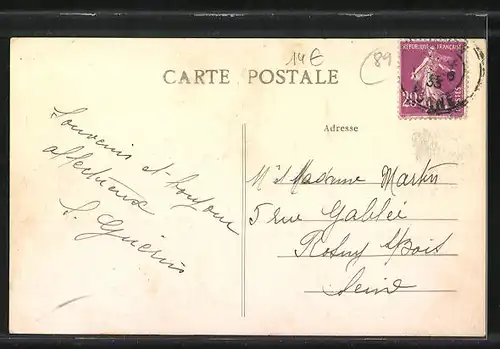 14€
89
CARTE POSTALE
RÉPUBLIQUE FRANÇAISE
20c
POSTES
33
Adresse
Souvenirs et bonjour
affectueux
Guérin
Mr et Madame Martin
5 rue Galilée
Rosny s/Bois
Seine